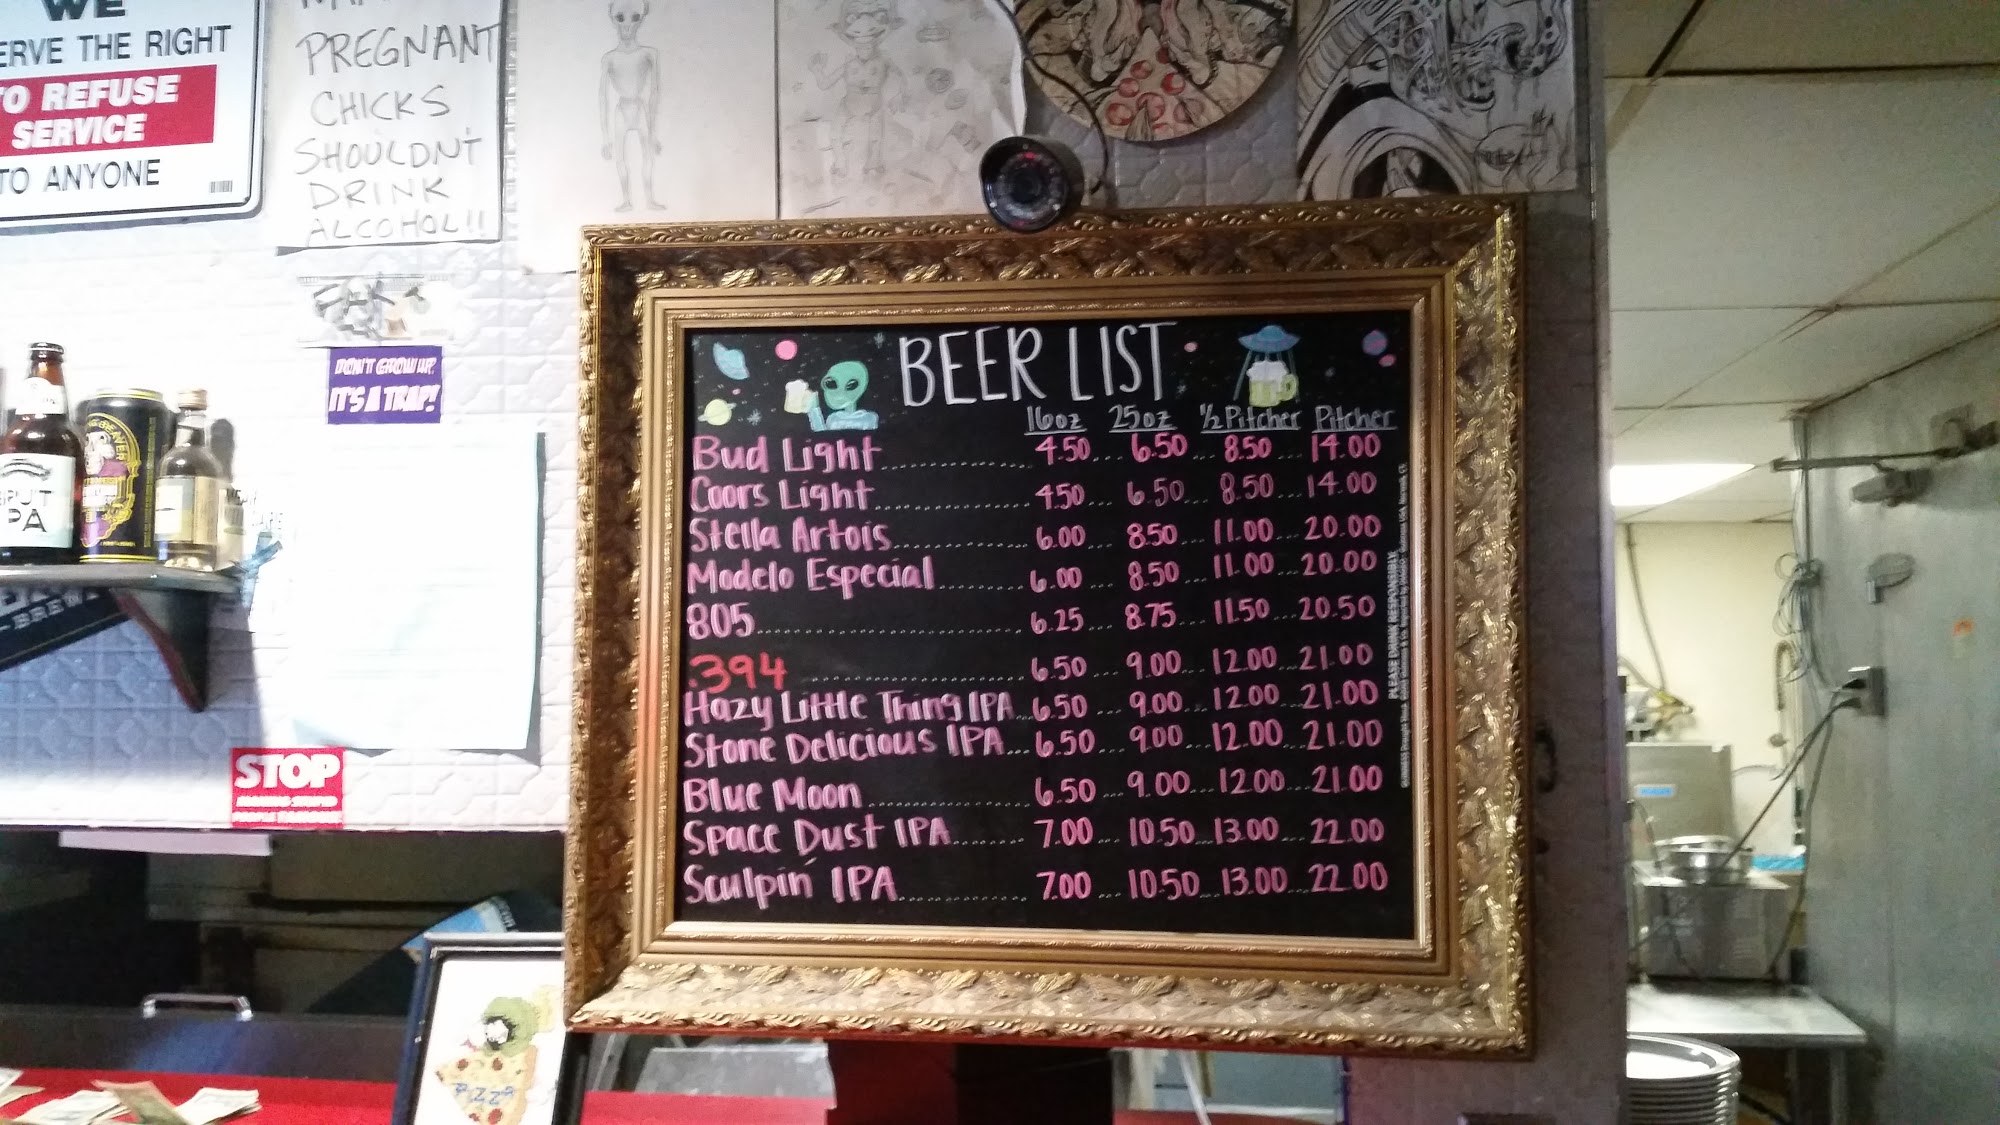 WE
ERVE THE RIGHT
TO REFUSE
SERVICE
TO ANYONE
PREGNANT
CHICKS
SHOULDN'T
DRINK
ALCOHOL!!
DON'T GROW UP.
IT'S A TRAP!
BRUT
IPA
STOP
PIZZA
BEER LIST
16oz 25oz ½ Pitcher Pitcher
Bud Light.................... 4.50.... 6.50 ... 8.50 ... 14.00
Coors Light.................... 4.50.... 6.50.... 8.50....14.00
Stella Artois.................. 6.00.... 8.50 .... 11.00....20.00
Modelo Especial............ 6.00 .... 8.50 .... 11.00....20.00
805................................ 6.25 .... 8.75 .... 11.50 ....20.50
.394 ......................... 6.50 .... 9.00.... 12.00....21.00
Hazy Little Thing IPA...6.50 .... 9.00.... 12.00....21.00
Stone Delicious IPA....6.50 .... 9.00....12.00...21.00
Blue Moon.................... 6.50 ....9.00....12.00....21.00
Space Dust IPA.......... 7.00 .... 10.50....13.00....22.00
Sculpin' IPA................ 7.00 .... 10.50...13.00...22.00
PLEASE DRINK RESPONSIBLY.